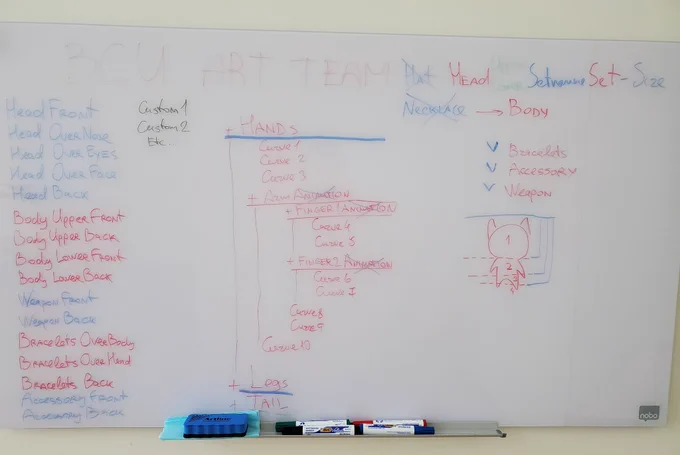 BCUI ART TEAM
Hat Head Setname Set-Size
Necklace → Body
Head Front
Head OverNose
Head OverEyes
Head OverFace
Head Back
Body Upper Front
Body Upper Back
Body Lower Front
Body Lower Back
Weapon Front
Weapon Back
Bracelets OverBody
Bracelets OverHand
Bracelets Back
Accessory Front
Accessory Back
Custom 1
Custom 2
Etc...
+ Hands
Curve 1
Curve 2
Curve 3
+ Arm Animation
+ Finger 1 Animation
Curve 4
Curve 5
+ Finger 2 Animation
Curve 6
Curve 7
Curve 8
Curve 9
Curve 10
+ Legs
+ Tail
V Bracelets
V Accessory
V Weapon
1
2
3
nobo